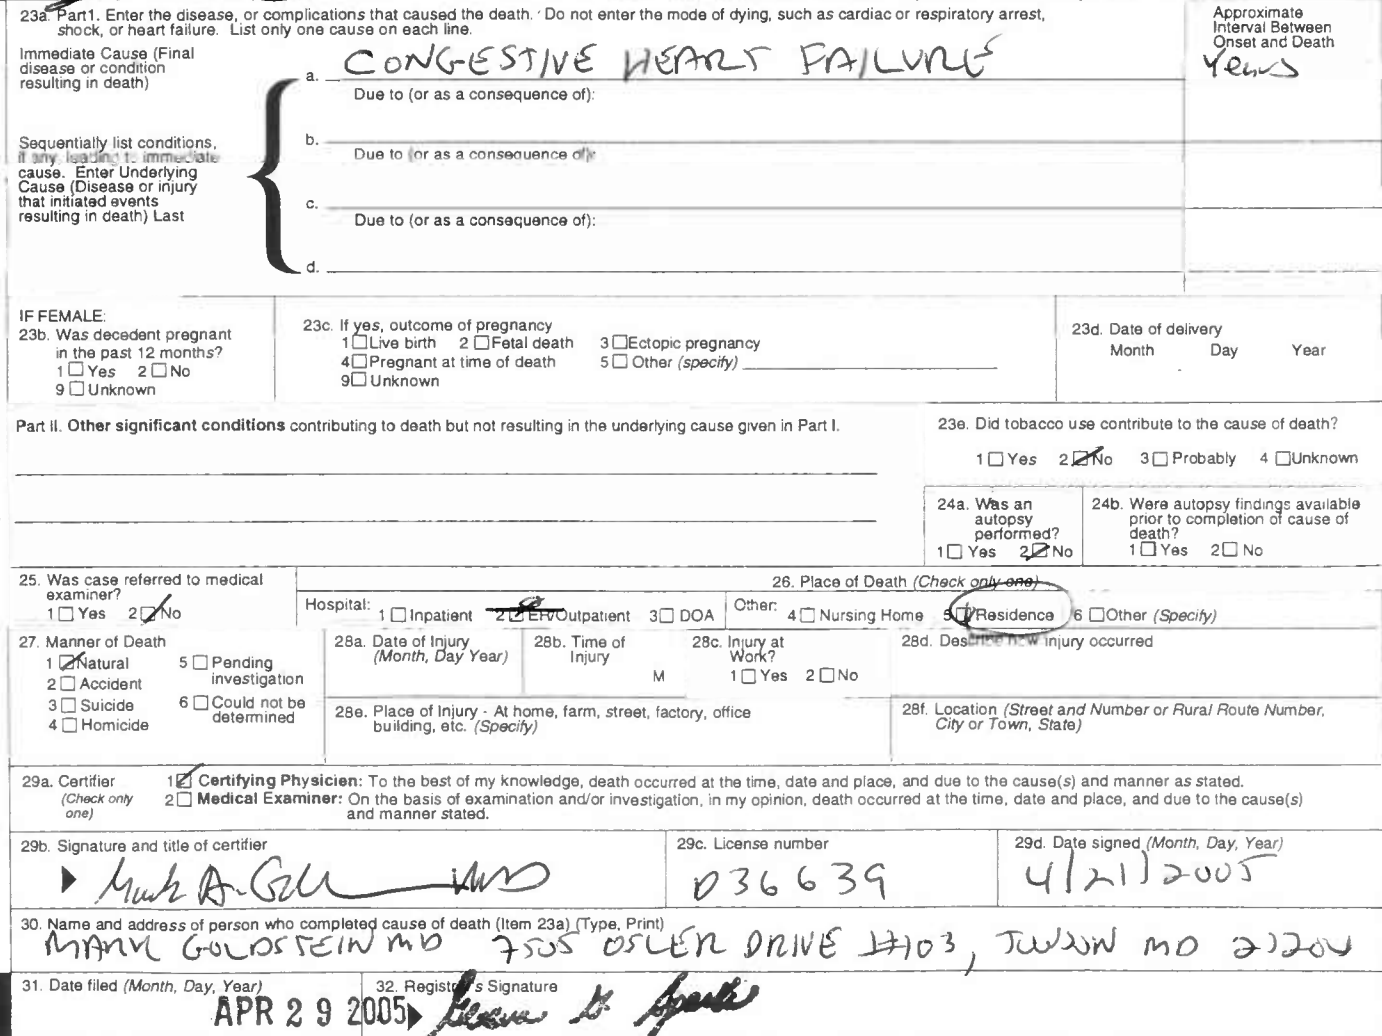 23a. Part1. Enter the disease, or complications that caused the death. Do not enter the mode of dying, such as cardiac or respiratory arrest,
shock, or heart failure. List only one cause on each line.
Approximate
Interval Between
Onset and Death
Immediate Cause (Final
disease or condition
resulting in death)
a. CONGESTIVE HEART FAILURE
Years
Due to (or as a consequence of):
Sequentially list conditions,
if any, leading to immediate
cause. Enter Underlying
Cause (Disease or injury
that initiated events
resulting in death) Last
b.
Due to (or as a consequence of):
c.
Due to (or as a consequence of):
d.
IF FEMALE:
23b. Was decedent pregnant
in the past 12 months?
1 ☐ Yes 2 ☐ No
9 ☐ Unknown
23c. If yes, outcome of pregnancy
1 ☐ Live birth 2 ☐ Fetal death 3 ☐ Ectopic pregnancy
4 ☐ Pregnant at time of death 5 ☐ Other (specify)
9 ☐ Unknown
23d. Date of delivery
Month Day Year
Part II. Other significant conditions contributing to death but not resulting in the underlying cause given in Part I.
23e. Did tobacco use contribute to the cause of death?
1 ☐ Yes 2 ☑ No 3 ☐ Probably 4 ☐ Unknown
24a. Was an
autopsy
performed?
1 ☐ Yes 2 ☑ No
24b. Were autopsy findings available
prior to completion of cause of
death?
1 ☐ Yes 2 ☐ No
25. Was case referred to medical
examiner?
1 ☐ Yes 2 ☑ No
26. Place of Death (Check only one)
Hospital: 1 ☐ Inpatient 2 ☑ ER/Outpatient 3 ☐ DOA Other: 4 ☐ Nursing Home 5 ☑ Residence 6 ☐ Other (Specify)
27. Manner of Death
1 ☑ Natural 5 ☐ Pending
investigation
2 ☐ Accident
3 ☐ Suicide 6 ☐ Could not be
determined
4 ☐ Homicide
28a. Date of Injury
(Month, Day Year)
28b. Time of
Injury
M
28c. Injury at
Work?
1 ☐ Yes 2 ☐ No
28d. Describe how injury occurred
28e. Place of Injury - At home, farm, street, factory, office
building, etc. (Specify)
28f. Location (Street and Number or Rural Route Number,
City or Town, State)
29a. Certifier
(Check only
one)
1 ☑ Certifying Physicien: To the best of my knowledge, death occurred at the time, date and place, and due to the cause(s) and manner as stated.
2 ☐ Medical Examiner: On the basis of examination and/or investigation, in my opinion, death occurred at the time, date and place, and due to the cause(s)
and manner stated.
29b. Signature and title of certifier
Mark A. MD
29c. License number
D36639
29d. Date signed (Month, Day, Year)
4/21/2005
30. Name and address of person who completed cause of death (Item 23a) (Type, Print)
MARK GOLDSTEIN MD 7505 OSLER DRIVE #103, TOWSON MD 21204
31. Date filed (Month, Day, Year)
APR 29 2005
32. Registrar's Signature